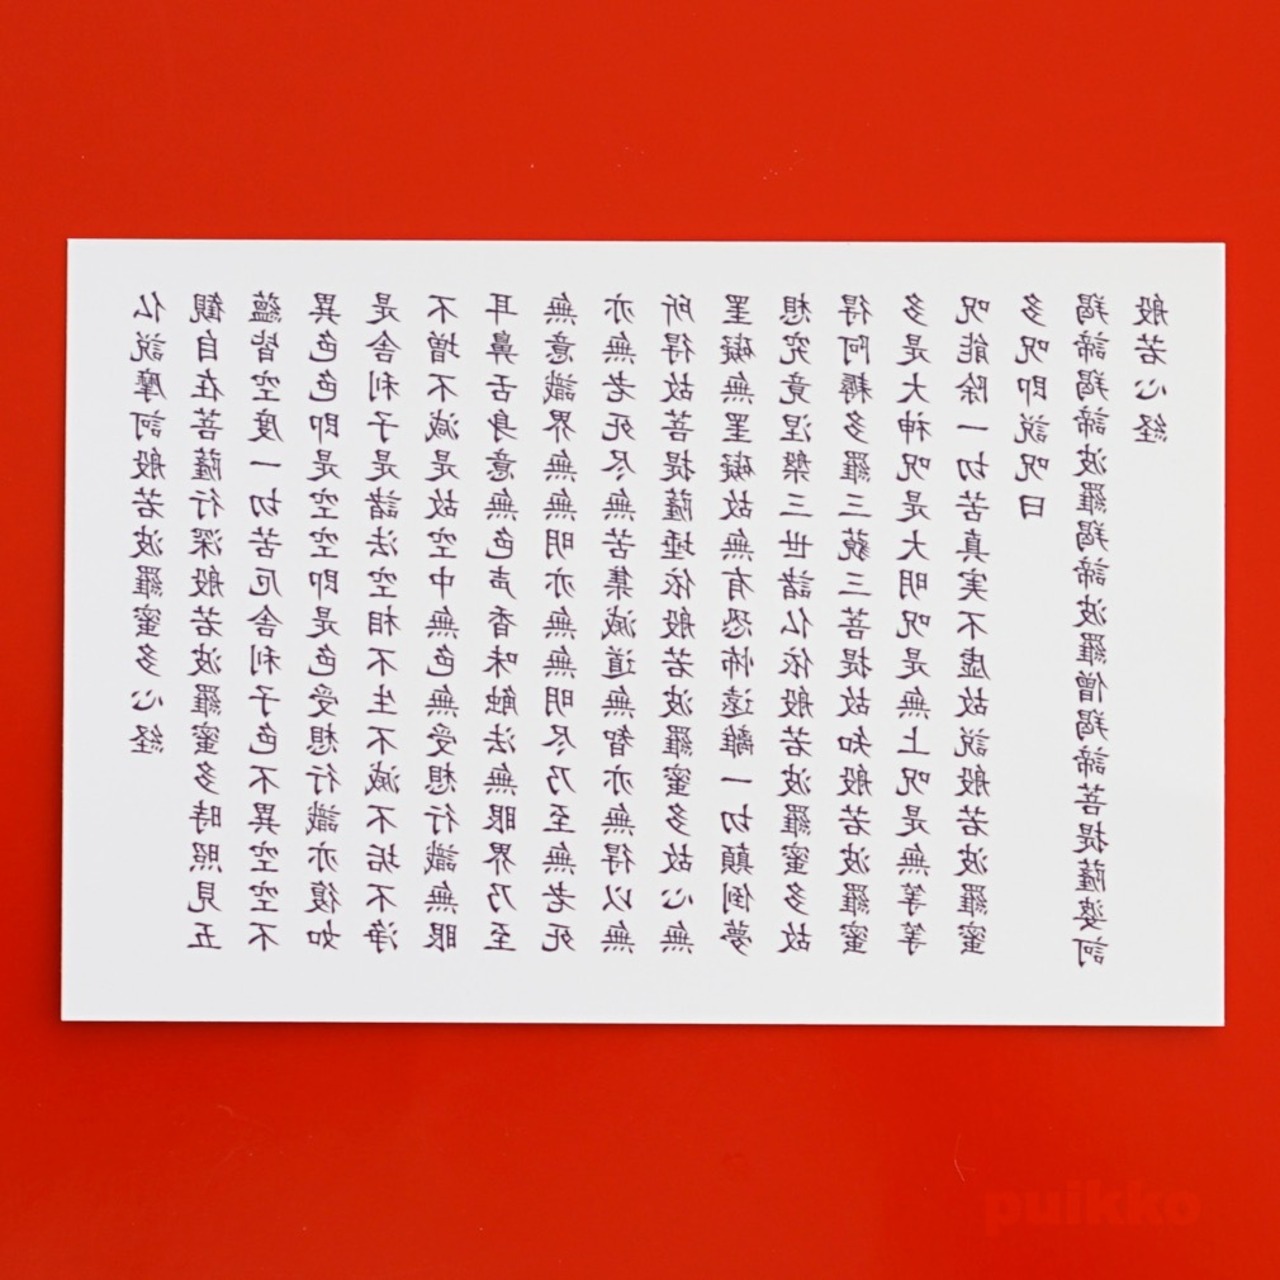 仏説摩訶般若波羅蜜多心経
観自在菩薩行深般若波羅蜜多時照見五
蘊皆空度一切苦厄舎利子色不異空空不
異色色即是空空即是色受想行識亦復如
是舎利子是諸法空相不生不滅不垢不浄
不増不減是故空中無色無受想行識無眼
耳鼻舌身意無色声香味触法無眼界乃至
無意識界無無明亦無無明尽乃至無老死
亦無老死尽無苦集滅道無智亦無得以無
所得故菩提薩埵依般若波羅蜜多故心無
罣礙無罣礙故無有恐怖遠離一切顛倒夢
想究竟涅槃三世諸仏依般若波羅蜜多故
得阿耨多羅三藐三菩提故知般若波羅蜜
多是大神呪是大明呪是無上呪是無等等
呪能除一切苦真実不虚故説般若波羅蜜
多呪即説呪曰
羯諦羯諦波羅羯諦波羅僧羯諦菩提薩婆訶
般若心経
puikko